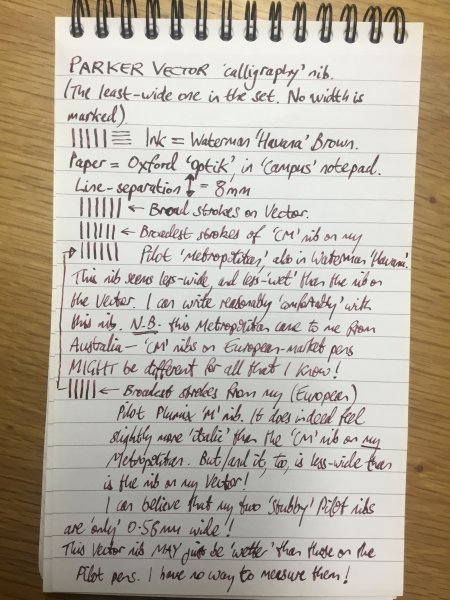 PARKER VECTOR 'calligraphy' nib.
(The least-wide one in the set. No width is
marked).
Ink = Waterman 'Havana' Brown.
Paper = Oxford 'Optik', in 'Campus' notepad.
Line-separation = 8mm
← Broad strokes on Vector.
← Broadest strokes of 'CM' nib on my
Pilot 'Metropolitan', also in Waterman 'Havana'.
This nib seems less-wide, and less-'wet' than the nib on
the Vector. I can write reasonably 'comfortably' with
this nib. N.B. this Metropolitan came to me from
Australia – 'CM' nibs on European-market pens
MIGHT be different for all that I know!
← Broadest strokes from my (European)
Pilot Plumix 'M' nib. It does indeed feel
slightly more 'italic' than the 'CM' nib on my
Metropolitan. But/and it, too, is less-wide than
is the nib on my Vector!
I can believe that my two 'stubby' Pilot nibs
are 'only' 0.58mm wide!!
This Vector nib MAY just be 'wetter' than those on the
Pilot pens. I have no way to measure them!